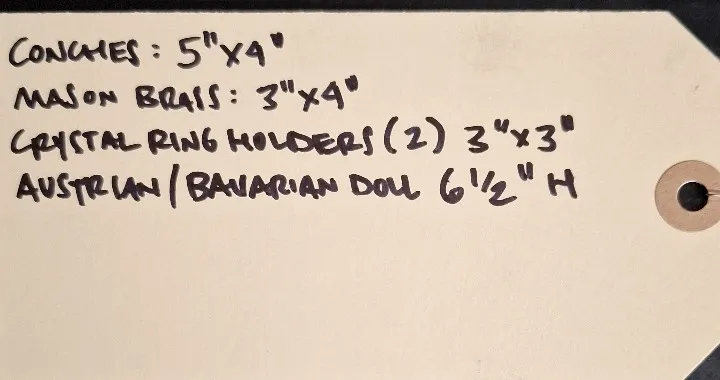 CONCHES: 5"X4"
MASON BRASS: 3"X4"
CRYSTAL RING HOLDERS (2) 3"X3"
AUSTRIAN/BAVARIAN DOLL 6 1/2" H